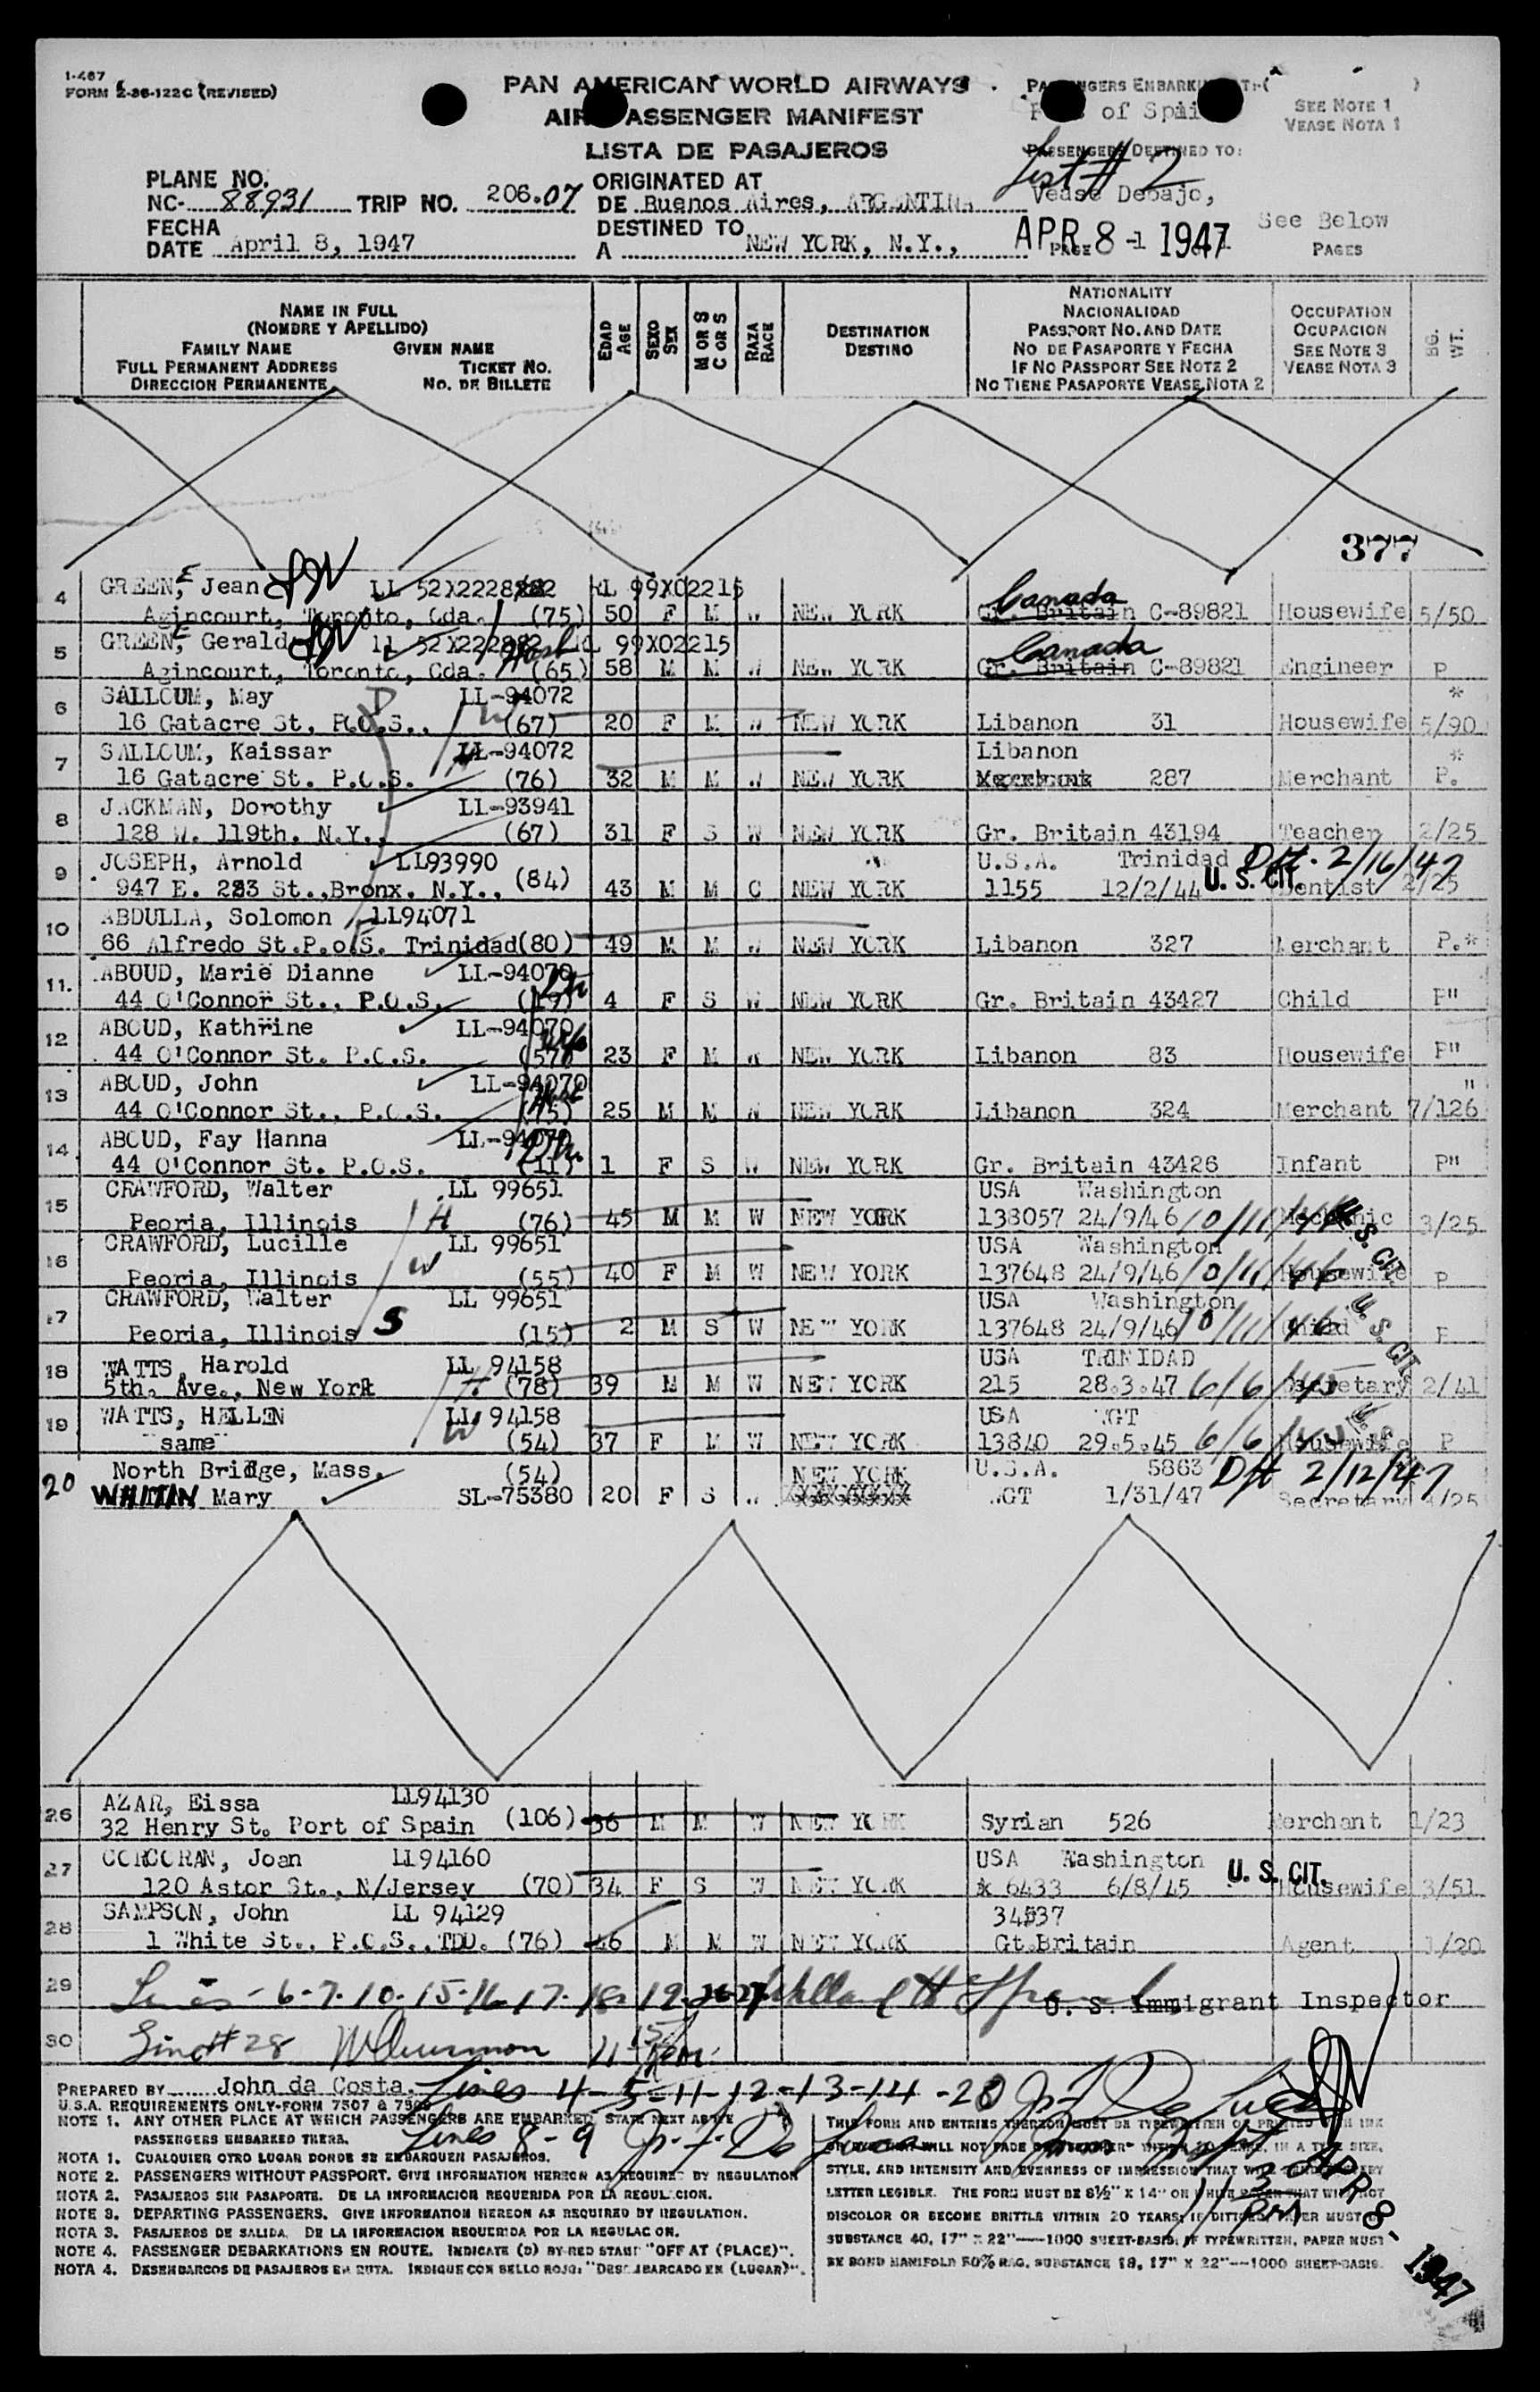 I-467
FORM E-36-122C (REVISED)
PAN AMERICAN WORLD AIRWAYS
AIR PASSENGER MANIFEST
LISTA DE PASAJEROS
PASSENGERS EMBARKING AT:
Port of Spain
SEE NOTE 1
VEASE NOTA 1
PASSENGERS DESTINED TO:
List # 2
Vease Debajo,
See Below
PLANE NO.
NC- 88931 TRIP NO. 206.07
ORIGINATED AT
DE Buenos Aires, ARGENTINA
FECHA
DATE April 8, 1947
DESTINED TO
A NEW YORK, N.Y.,
APR 8-1947
PAGE
PAGES
NAME IN FULL
(NOMBRE Y APELLIDO)
FAMILY NAME GIVEN NAME
FULL PERMANENT ADDRESS TICKET NO.
DIRECCION PERMANENTE NO. DE BILLETE
EDAD AGE
SEXO SEX
M OR S C OR S
RAZA RACE
DESTINATION
DESTINO
NATIONALITY
NACIONALIDAD
PASSPORT NO. AND DATE
NO DE PASAPORTE Y FECHA
IF NO PASSPORT SEE NOTE 2
NO TIENE PASAPORTE VEASE NOTA 2
OCCUPATION
OCUPACION
SEE NOTE 3
VEASE NOTA 3
BG. WT.
377
4 GREENE, Jean LL 52X222882 RL 99X02215 Canada
Agincourt, Toronto, Cda. (75) 50 F M W NEW YORK Gr. Britain C-89821 Housewife 5/50
5 GREENE, Gerald 11 52X222882 RL 99X02215 Canada
Agincourt, Toronto, Cda. (65) 58 M M W NEW YORK Gr. Britain C-89821 Engineer P
6 SALLOUM, May LL-94072 *
16 Gatacre St, P.O.S., (67) 20 F M W NEW YORK Libanon 31 Housewife 5/90
7 SALLOUM, Kaissar LL-94072 Libanon *
16 Gatacre St. P.O.S. (76) 32 M M W NEW YORK 287 Merchant P.
8 JACKMAN, Dorothy LL-93941
128 W. 119th. N.Y., (67) 31 F S W NEW YORK Gr. Britain 43194 Teacher 2/25
9 JOSEPH, Arnold LL93990 U.S.A. Trinidad Dft. 2/16/47
947 E. 223 St., Bronx. N.Y., (84) 43 M M C NEW YORK 1155 12/2/44 U. S. CIT. Dentist 2/25
10 ABDULLA, Solomon LL94071
66 Alfredo St.P.o.S. Trinidad (80) 49 M M W NEW YORK Libanon 327 Merchant P.*
11. ABOUD, Marie Dianne LL-94070
44 O'Connor St., P.O.S. (19) 4 F S W NEW YORK Gr. Britain 43427 Child P"
12 ABOUD, Kathrine LL-94070
44 O'Connor St. P.O.S. (57) 23 F M W NEW YORK Libanon 83 Housewife P"
13 ABOUD, John LL-94070 "
44 O'Connor St., P.O.S. (75) 25 M M W NEW YORK Libanon 324 Merchant 7/126
14. ABOUD, Fay Hanna LL-94070
44 O'Connor St. P.O.S. (11) 1 F S W NEW YORK Gr. Britain 43426 Infant P"
15 CRAWFORD, Walter LL 99651 USA Washington
Peoria, Illinois H (76) 45 M M W NEW YORK 138057 24/9/46 10/11/46 Mechanic U. S. CIT. 3/25
16 CRAWFORD, Lucille LL 99651 USA Washington
Peoria, Illinois W (55) 40 F M W NEW YORK 137648 24/9/46 10/11/46 Housewife P
17 CRAWFORD, Walter LL 99651 USA Washington
Peoria, Illinois S (15) 2 M S W NEW YORK 137648 24/9/46 10/11/46 Child U. S. CIT. P
18 WATTS, Harold LL 94158 USA TRINIDAD
5th. Ave., New York H (78) 39 M M W NEW YORK 215 28.3.47 6/6/45 Secretary 2/41
19 WATTS, HELLEN LL 94158 USA WGT
"same" W (54) 37 F M W NEW YORK 13840 29.5.45 6/6/45 Housewife P
20 North Bridge, Mass. (54) NEW YORK U.S.A. 5863 Dft 2/12/47
WHITIN Mary SL-75380 20 F S W WGT 1/31/47 Secretary /25
26 AZAR, Eissa LL94130
32 Henry St. Port of Spain (106) 36 M M W NEW YORK Syrian 526 Merchant 1/23
27 CORCORAN, Joan LL94160 USA Washington U. S. CIT.
120 Astor St., N/Jersey (70) 34 F S W NEW YORK 6433 6/8/45 Housewife 3/51
28 SAMPSON, John LL 94129 34537
1 White St., P.O.S., TDD. (76) 46 M M W NEW YORK Gt.Britain Agent 1/20
29 Lines - 6-7-10-15-16-17-18-19-26-27 U. S. Immigrant Inspector
30 Line # 28
PREPARED BY John da Costa. Lines 4-5-11-12-13-14-20
U.S.A. REQUIREMENTS ONLY-FORM 7507 & 7509
NOTE 1. ANY OTHER PLACE AT WHICH PASSENGERS ARE EMBARKED, STATE NEXT ABOVE
PASSENGERS EMBARKED THERE.
Lines 8-9
NOTA 1. CUALQUIER OTRO LUGAR DONDE SE EMBARQUEN PASAJEROS.
NOTE 2. PASSENGERS WITHOUT PASSPORT. GIVE INFORMATION HEREON AS REQUIRED BY REGULATION
NOTA 2. PASAJEROS SIN PASAPORTE. DE LA INFORMACION REQUERIDA POR LA REGULACION.
NOTE 3. DEPARTING PASSENGERS. GIVE INFORMATION HEREON AS REQUIRED BY REGULATION.
NOTA 3. PASAJEROS DE SALIDA. DE LA INFORMACION REQUERIDA POR LA REGULACION.
NOTE 4. PASSENGER DEBARKATIONS EN ROUTE. INDICATE (D) BY RED STAMP "OFF AT (PLACE)".
NOTA 4. DESEMBARCOS DE PASAJEROS EN RUTA. INDIQUE CON SELLO ROJO: "DESEMBARCADO EN (LUGAR)".
THIS FORM AND ENTRIES THEREON MUST BE TYPEWRITTEN OR PRINTED WITH INK
OR DYE THAT WILL NOT FADE OR "FEATHER" WITHIN 20 YEARS, IN A TYPE SIZE,
STYLE, AND INTENSITY AND EVENNESS OF IMPRESSION THAT WILL
LETTER LEGIBLE. THE FORM MUST BE 8½" X 14" ON WHITE PAPER THAT WILL NOT
DISCOLOR OR BECOME BRITTLE WITHIN 20 YEARS; IF DITTOED, PAPER MUST
SUBSTANCE 40, 17" X 22"—1000 SHEET-BASIS; IF TYPEWRITTEN, PAPER MUST
BE BOND MANIFOLD 50% RAG, SUBSTANCE 18, 17" X 22"—1000 SHEET-BASIS.
APR 8- 1947